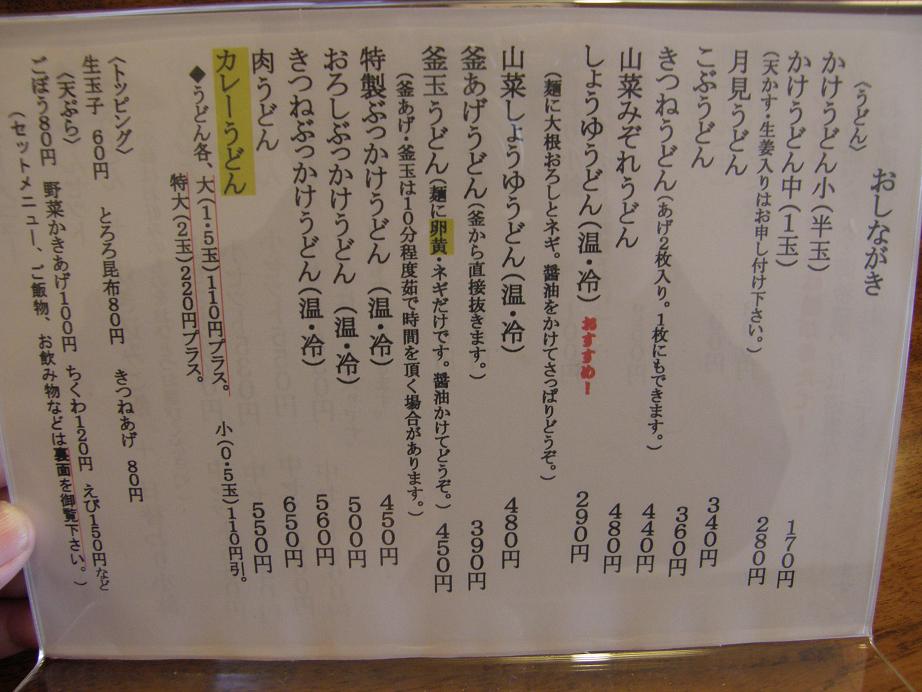 おしながき
〈うどん〉
かけうどん小(半玉) 170円
かけうどん中(1玉) 280円
(天かす・生姜入りはお申し付け下さい。)
月見うどん 340円
こぶうどん 360円
きつねうどん(あげ2枚入り。1枚にもできます。) 440円
山菜みぞれうどん 480円
しょうゆうどん(温・冷) おすすめ! 290円
(麺に大根おろしとネギ。醤油をかけてさっぱりどうぞ。)
山菜しょうゆうどん(温・冷) 480円
釜あげうどん(釜から直接抜きます。) 390円
釜玉うどん(麺に卵黄・ネギだけです。醤油かけてどうぞ。) 450円
(釜あげ・釜玉は10分程度茹で時間を頂く場合があります。)
特製ぶっかけうどん(温・冷) 450円
おろしぶっかけうどん(温・冷) 500円
きつねぶっかけうどん(温・冷) 560円
肉うどん 650円
カレーうどん 550円
◆うどん各、大(1・5玉)110円プラス。 小(0・5玉)110円引。
特大(2玉)220円プラス。
〈トッピング〉
生玉子 60円 とろろ昆布80円 きつねあげ 80円
〈天ぷら〉
ごぼう80円 野菜かきあげ100円 ちくわ120円 えび150円など
(セットメニュー、ご飯物、お飲み物などは裏面を御覧下さい。)